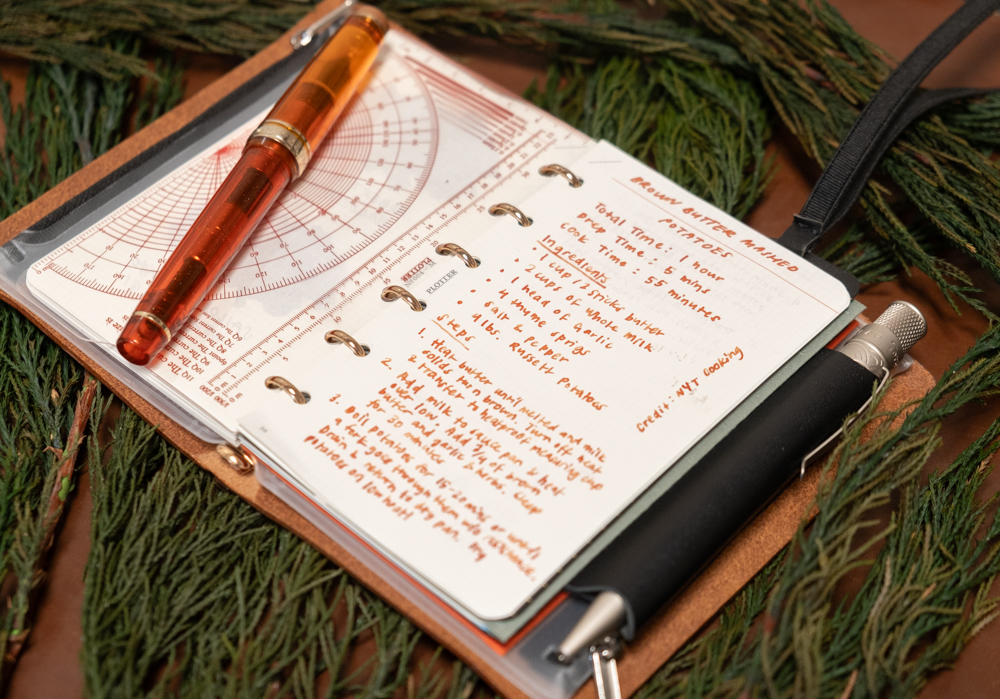 BROWN BUTTER MASHED
POTATOES
Total Time: 1 hour
Prep Time: 5 mins
Cook Time: 55 minutes
Ingredients
• 1 cup / 2 sticks butter
• 2 cups of whole milk
• 1 head of garlic
• 4 thyme sprigs
• salt & pepper
4lbs. Russett Potatoes
Steps
1. Heat butter until melted and milk
solids turn brown. Turn off heat
transfer to heatproof measuring cup
2. Add milk to sauce pan & heat
over low. Add 3/4 of brown
butter and garlic & herbs. Cook
for 30 minutes
3. Boil potatoes for 15-20 min, or until
a fork goes through them w/o resistance.
Drain & return to dry pan. Dry
potatoes on low heat!
Credit: NYT Cooking
PLOTTER